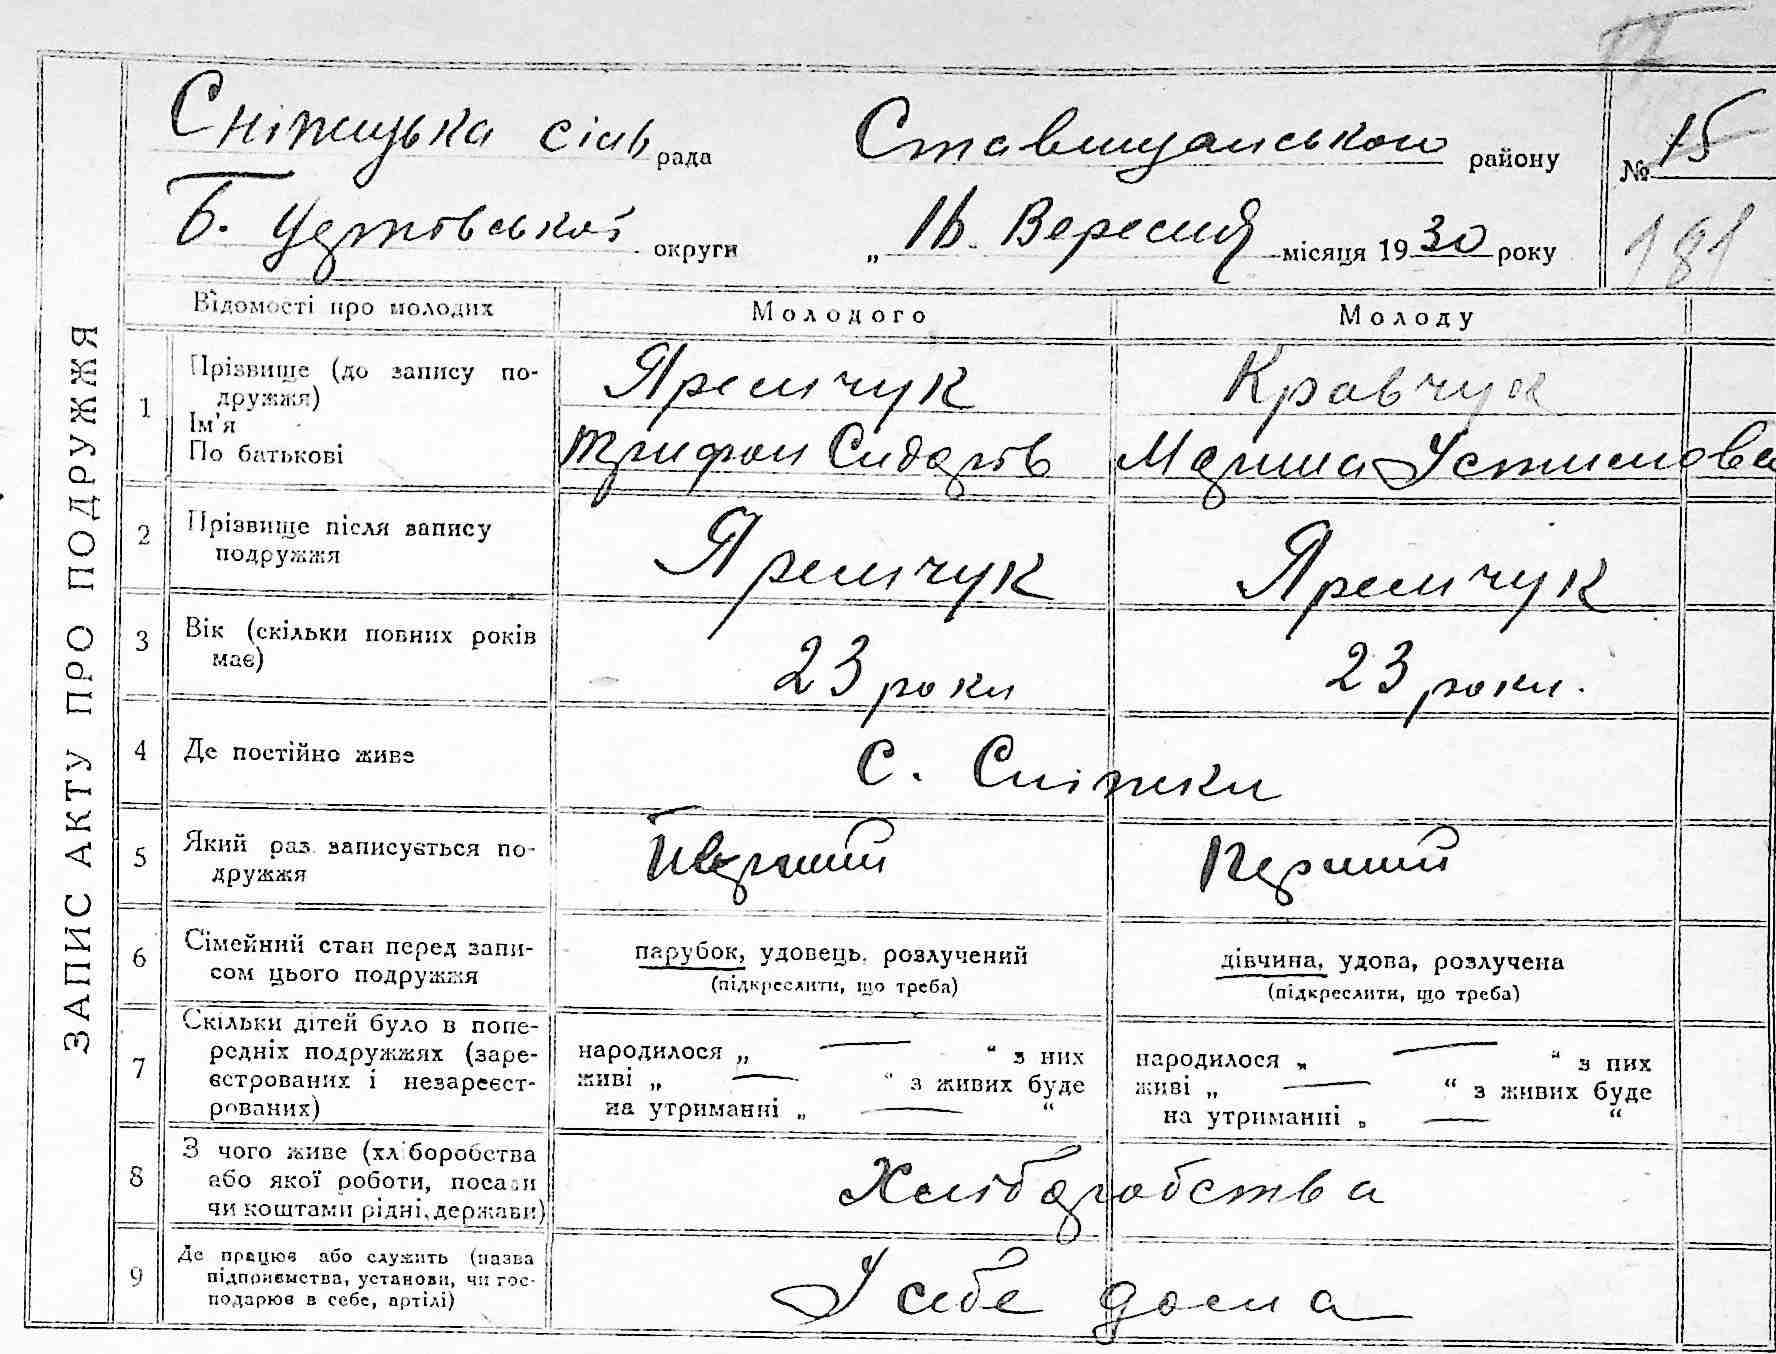 Сніжицька сіль рада Ставищанського району № 15
Б. Церківської округи „ 16. Вересня місяця 1930 року 181
ЗАПИС АКТУ ПРО ПОДРУЖЖЯ
Відомості про молодих Молодого Молоду
1 Прізвище (до запису по- Яремчук Кравчук
дружжя)
Ім'я
По батькові Трифон Сидорів Марина Устимова
2 Прізвище після запису
подружжя Яремчук Яремчук
3 Вік (скільки повних років
має) 23 роки 23 роки.
4 Де постійно живе с. Сніжки
5 Який раз записується по- Перший Перший
дружжя
6 Сімейний стан перед запи- парубок, удовець, розлучений дівчина, удова, розлучена
сом цього подружжя (підкреслити, що треба) (підкреслити, що треба)
7 Скільки дітей було в попе-
редніх подружжях (заре- народилося „ — “ з них народилося „ — “ з них
єстрованих і незареєст- живі „ — “ з живих буде живі „ — “ з живих буде
рованих) на утриманні „ — “ на утриманні „ — “
8 З чого живе (хліборобства
або якої роботи, посади Хліборобства
чи коштами рідні, держави)
9 Де працює або служить (назва
підприємства, установи, чи гос- У себе дома
подарює в себе, артілі)